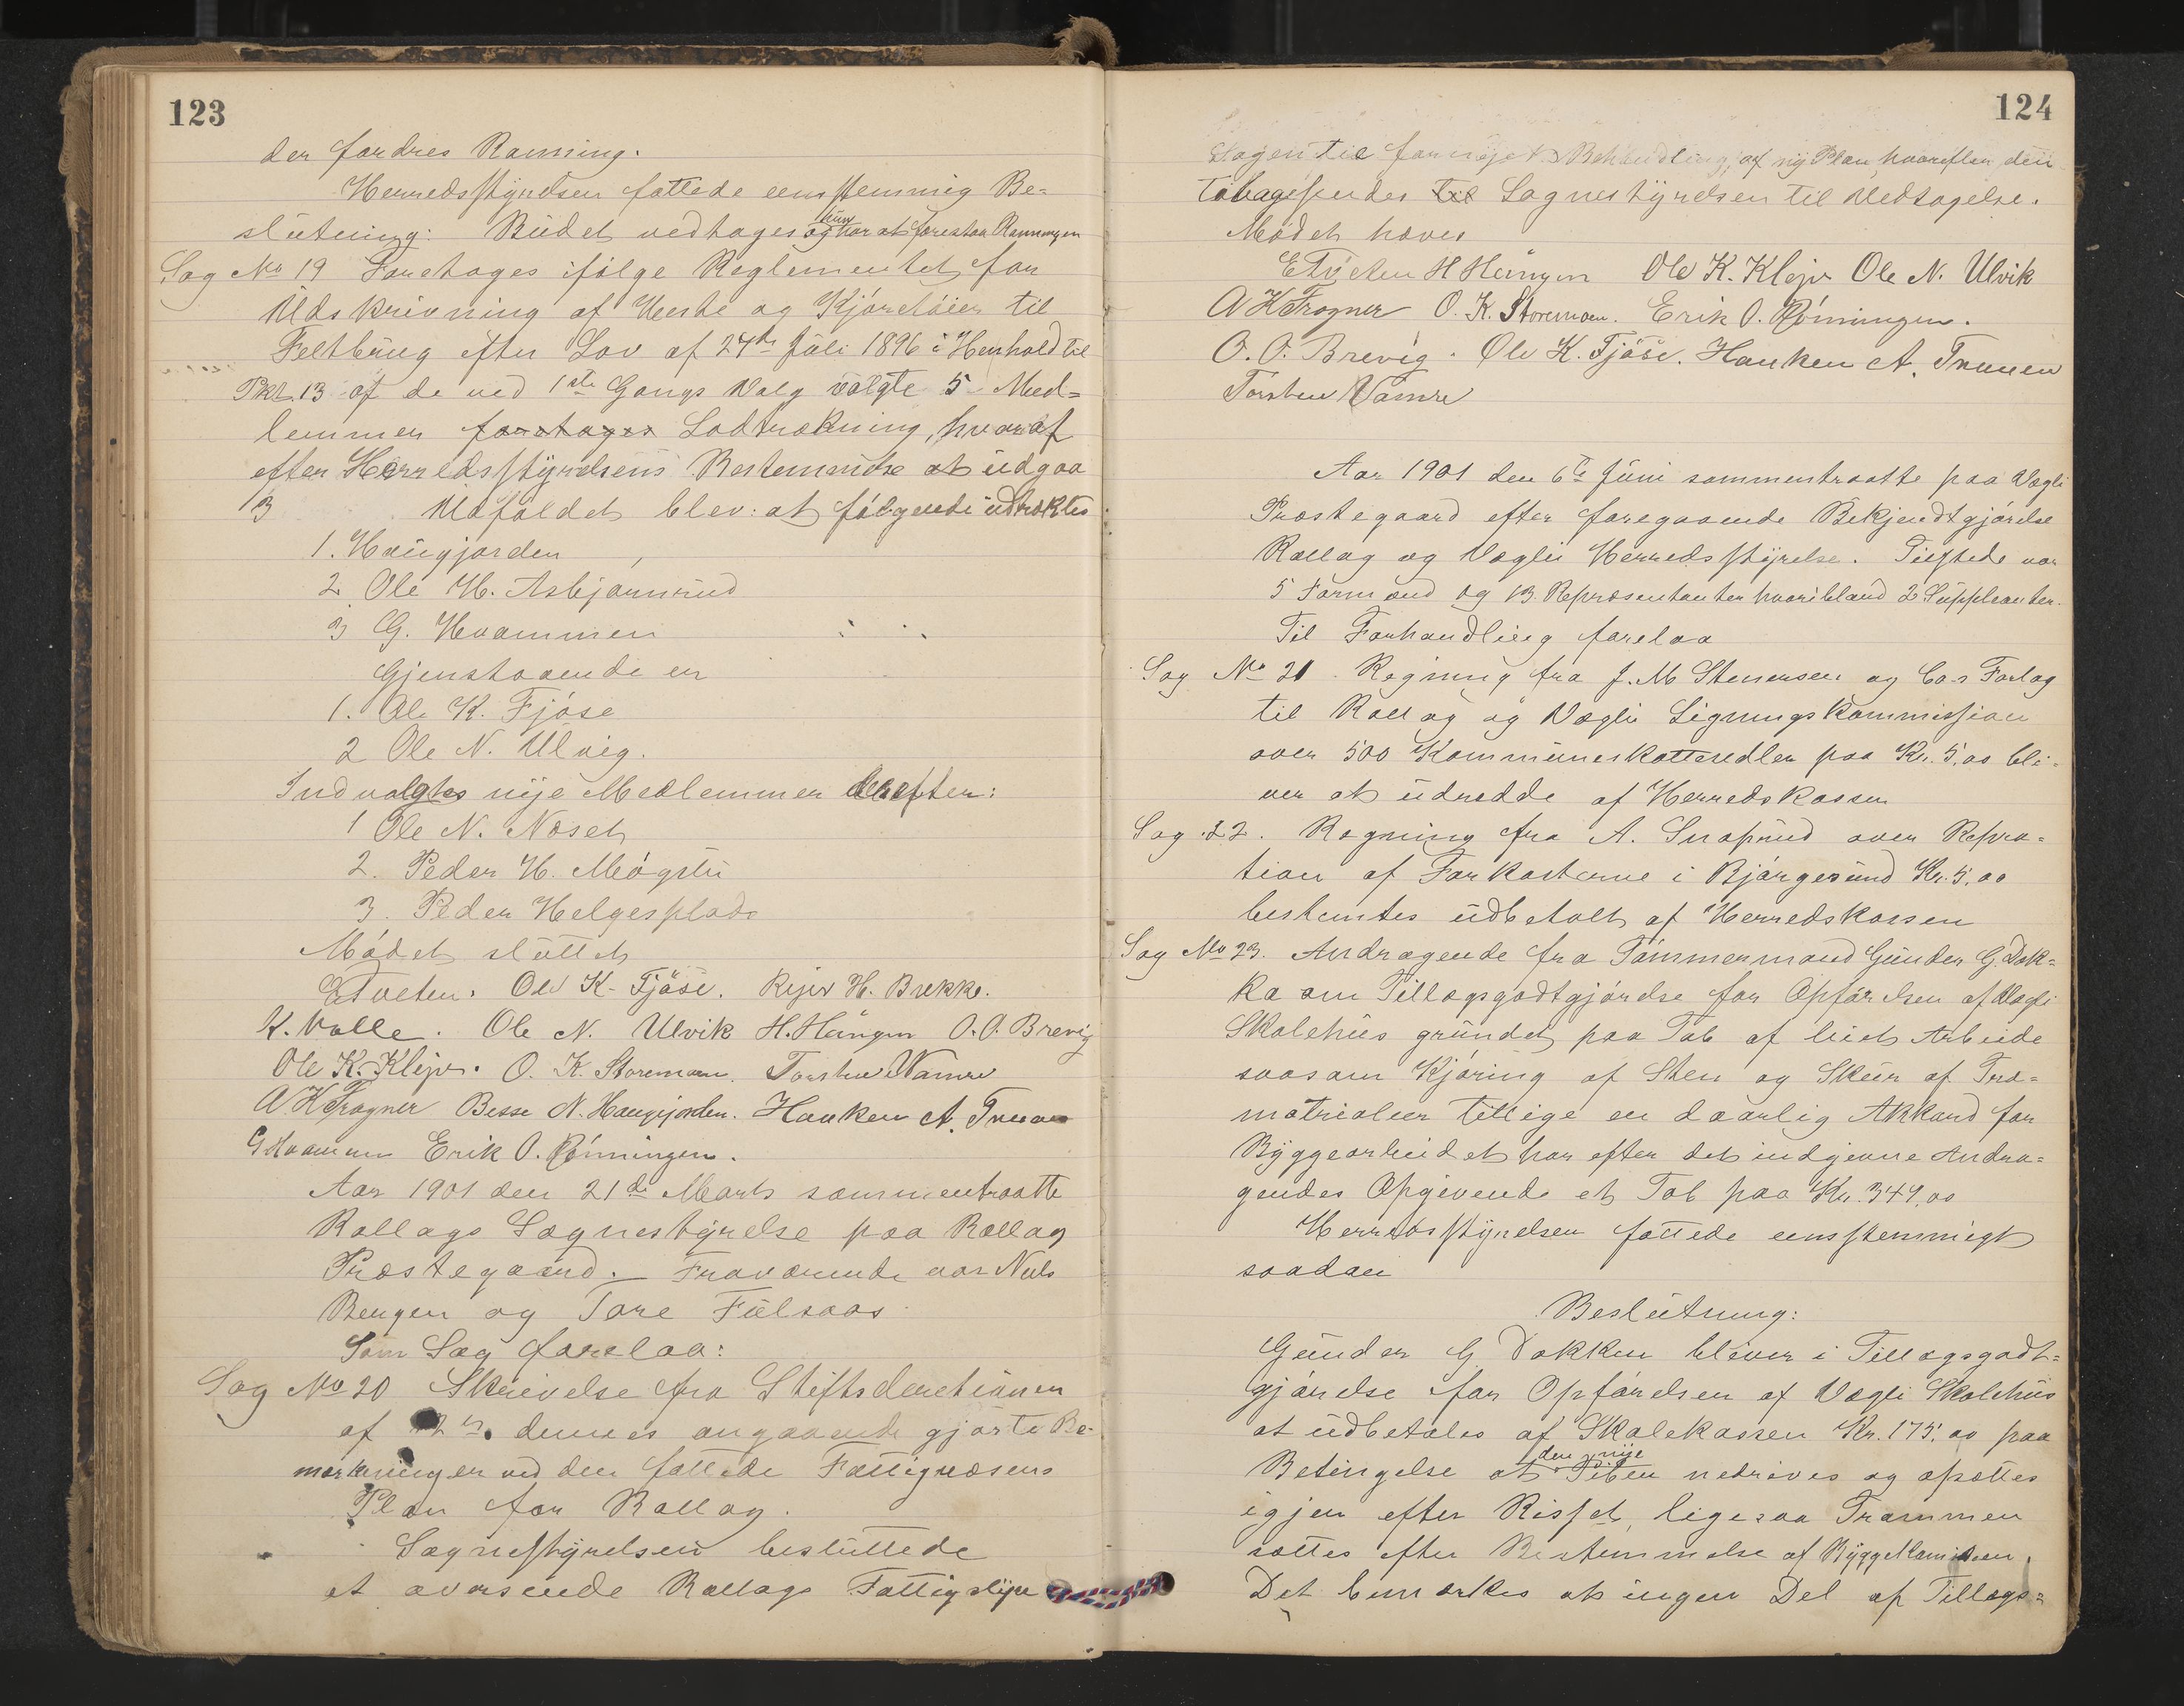 123
der fordres Ramning.
Herredsstyrelsen fattede eensstemmig Be=
slutning: Budet vedtages og hun har at forestaa Ramningen
Sag No 19 Foretages ifølge Reglementet for
Udskrivning af Heste og Kjøretøier til
Feltbrug efter Lov af 27de Juli 1896 i Henhold til
Pkt. 13 af de ved 1ste Gangs Valg valgte 5 Med=
lemmer foretages Lodtrækning, hvoraf
efter Herredsstyrelsens Bestemmelse at udgaa
3 Udfaldet blev: at følgende udtrektes
1. Haugjorden
2 Ole H. Asbjørnrud
3 G. Hvammen
Gjenstaaende er
1. Ole K. Fjøse
2 Ole N. Ulvig.
Indvalgtes nye Medlemmer derefter:
1 Ole N. Næset
2. Peder H. Møgsti
3. Peder Helgesplads
Mødet sluttet
E Tveten. Ole K. Fjöse. Rejer H. Brekke.
K. Valle. Ole N. Ulvik H. Haugen O. O. Brevig
Ole K. Klejv. O. K. Storemoen. Torsten Vamre
A K Frogner Besse N. Haugjorden. Haaken A. Truen
G Hvammen Erik O. Rönningen.
Aar 1901 den 21de Marts sammentraatte
Rollags Sognestyrelse paa Rollag
Præstegaard. Fraværende var Niels
Bergen og Tore Fulsaas.
Som Sag forelaa:
Sag No 20 Skrivelse fra Stiftsderetionen
af 12te dennes angaaende gjorte Be-
mærkninger ved den fattede Fattigvæsens
Plan for Rollag.
Sognestyrelsen besluttede
at oversende Rollags Fattigstyre
124
Sagen til fornøjet Behandling af ny Plan, hvorefter den
tilbagesendes til Sognestyrelsen til Vedtagelse.
Mødet hæves
E Tveten H Haugen Ole K. Klejv Ole N. Ulvik
A K Frogner O. K. Storemoen. Erik O. Rönningen.
O. O. Brevig. Ole K. Fjöse. Haaken A. Truuen
Torsten Vamre
Aar 1901 den 6te Juni sammentraatte paa Vægli
Præstegaard efter foregaaende Bekjendtgjørelse
Rollag og Væglis Herredsstyrelse. Tilstede var
5 Formænd og 13 Repræsentanter hvoriblandt 2 Suppleanter.
Til Forhandling forelaa
Sag No 21 Regning fra J. M Stenersen og Co-s Forlag
til Rollag og Vægli Ligningskommission
over 500 Kommuneskattesedler paa Kr. 5,00 bli-
ver at udredde af Herredskassen
Sag 22. Regning fra A. Snaprud over Repra=
tion af Farkosterne i Bjørgesund Kr. 5,00
bestemtes udbetalt af Herredskassen
Sag No 23. Andragende fra Tømmermand Gunder G. Dok=
ka om Tillægsgodtgjørelse for Opførelsen af Vægli
Skolehus grundet paa Tab af leiet Arbeide
saasom Kjøring af Sten og Skur af Træ=
matrialier tillige en daarlig Akkord for
Byggearbeidet har efter det indgivne Andra=
gendes Opgivende et Tab paa Kr. 349,00
Herredsstyrelsen fattede eensstemmigt
saadan
Beslutning:
Gunder G Dokken bliver i Tillægsgodt=
gjørelse for Opførelsen af Vægli Skolehus
at udbetales af Skolekassen Kr. 175,00 paa
Betingelse at den nye Piben nedrives og opsettes
igjen efter Risset, ligesaa Trammen
sættes efter Bestemmelse af Byggekomiteen.
Det bemærkes at ingen Del af Tillægs=